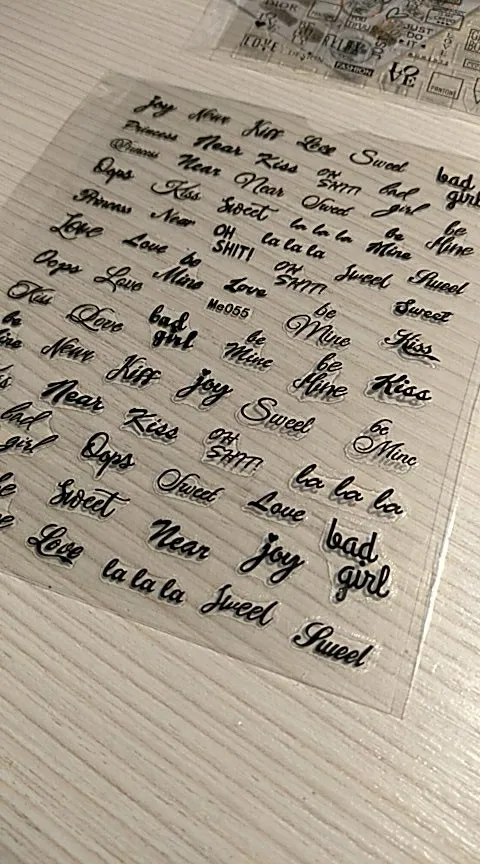 DIOR
JUST DO IT
LOVE
FASHION
LOVE
PANTONE
Joy Never Kiss Love Sweet bad girl
Princess Near Kiss OH SHIT! bad girl be Mine
Princess Near Near Sweet be Mine
Oops Kiss Sweet la la la Sweet Sweet
Princess Near OH SHIT! la la la OH SHIT! Sweet
Love Love be Mine Love be Mine Kiss
Oops Love Me055
Kiss Love bad girl be Mine be Mine Kiss
be
Never Kiss joy Sweet be Mine
Near Kiss OH SHIT! la la la
bad girl Oops Sweet Love bad girl
Sweet Near joy
Love la la la Sweet Sweet